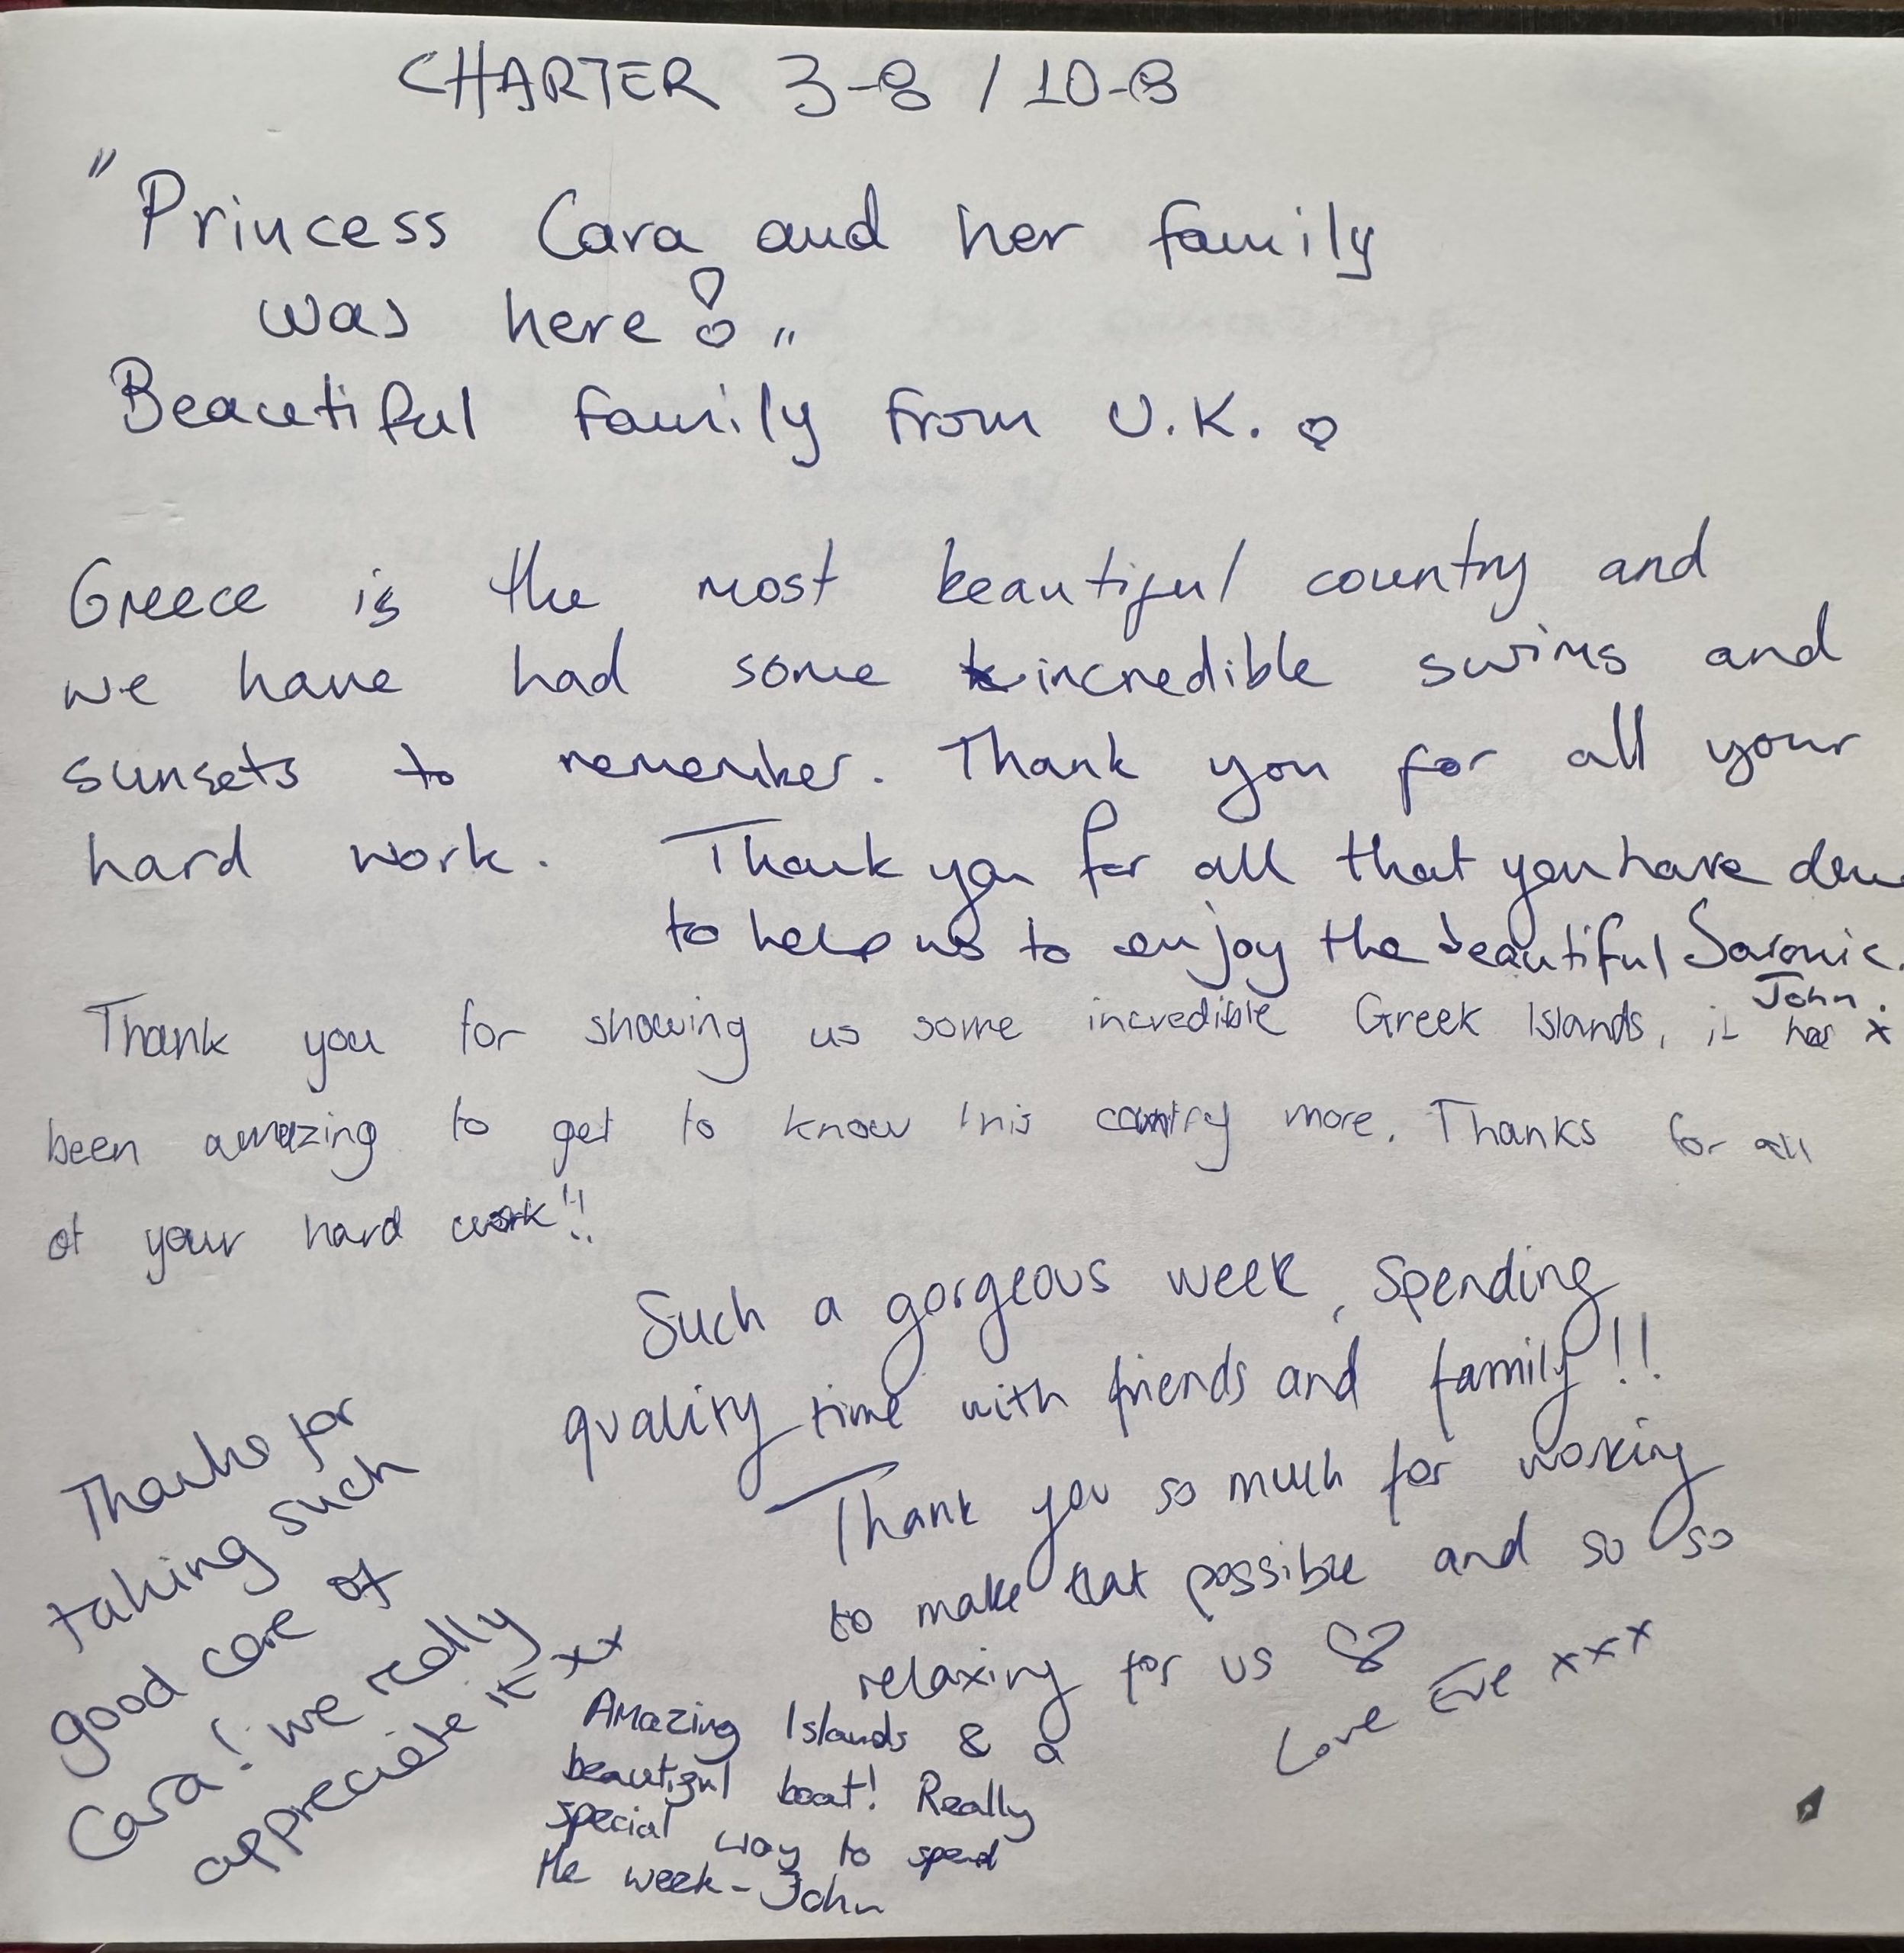 CHARTER 3-8 / 10-8
"Princess Cara and her family
was here!"
Beautiful family from U.K.
Greece is the most beautiful country and
we have had some incredible swims and
sunsets to remember. Thank you for all your
hard work.
Thank you for all that you have done
to help us to enjoy the beautiful Saronic.
John.
x
Thank you for showing us some incredible Greek Islands, it has
been amazing to get to know this country more. Thanks for all
of your hard work!!
Such a gorgeous week, spending
quality time with friends and family!!
Thank you so much for working
to make that possible and so so
relaxing for us ♡
Love Eve xxx
Thanks for
taking such
good care of
Cara! we really
appreciate it xx
Amazing Islands & a
beautiful boat! Really
special way to spend
the week - John